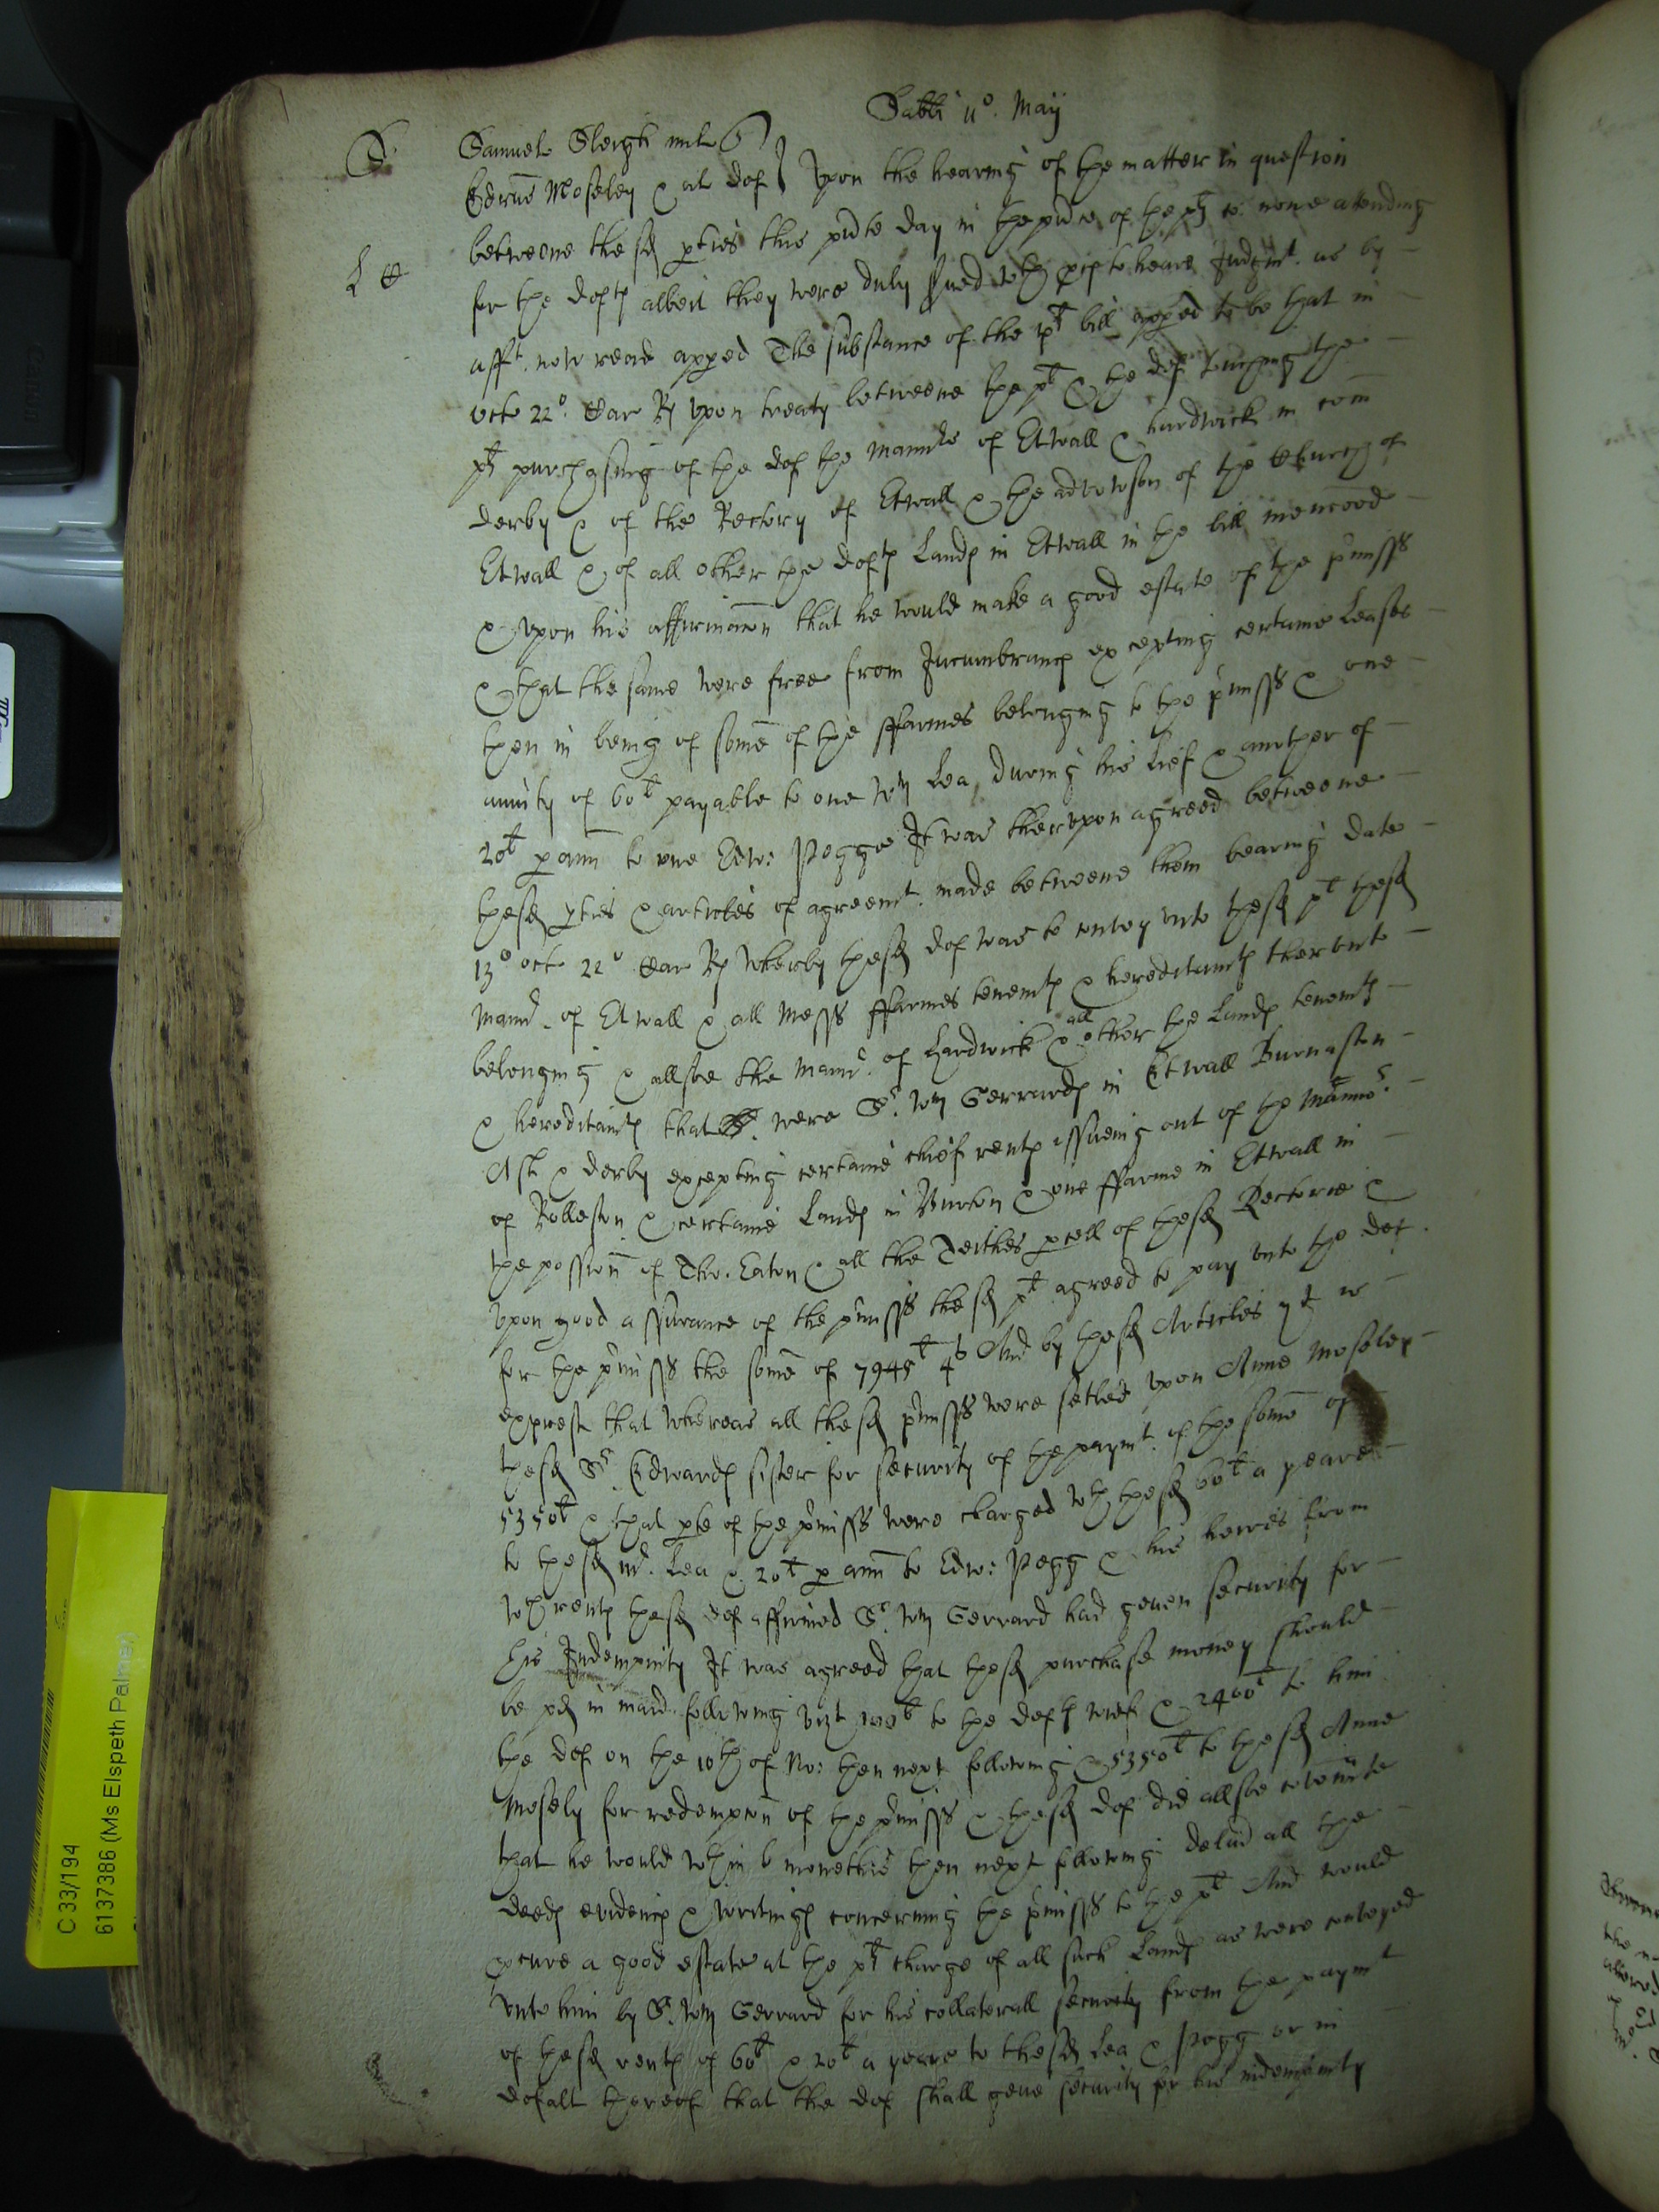 Sabti 11o. May
S
Samuele Sleigh milt
Edrus Moseley & al def Upon the hearing of the matter in question
betweene the sd pties this pnte day in the pnce of the plt &c none attending
L
for the deft albeit they were duly sved wth pces to heare Judgmt. as by
afft. now read apped The substance of the plt bill apped to be that in
octo 22o. Car R upon treaty betweene the plt & the def touching the
plt purchasing of the def the mannrs of Etwall & hardwick in com
derby & of the Rectory of Etwall & the advowson of the Church of
Etwall & of all other the defts Lands in Etwall in the bill menconed
& upon his affirmacon that he would make a good estate of the pmisss
& that the same were free from Incumbrancs excepting certaine Leases
then in being of some of the ffarmes belonging to the pmisss & one
anuity of 60l payable to one Wm Lea, during his Lief & another of
20l p ann to one Edw: Pegge It was thereupon agreed betweene
the sd pties & articles of agreemt. made betweene them bearing date
13o octo 22o Car R Whereby the sd def was to convey unto the sd plt the sd
mannr. of Etwall & all Messs ffarmes tenemts & hereditamts thereunto
belonging & allsoe the mannr. of Hardwick & all other the Lands tenemts
& hereditamts that were Sr. Wm Gerrards in Etwall Burnaston
Ash & derby excepting certaine chief rents issueing out of the mannor.
of Rolleston & certaine Lands in Burton & one ffarme in Etwall in
the possion of Tho. Eaton & all the Teithes pcell of the sd Rectorie &
upon good assurance of the pmisss the sd plt agreed to pay unto the def.
for the pmisss the some of 7945l 4s And by the sd Articles yt is
exprest that whereas all the sd pmisss were setled upon Anne Moseley
the sd Sr. Edwards sister for security of the paymt. of the some of
5350l & that pte of the pmisss were charged wth the sd 60l a yeare
to the sd mr. Lea & 20l p ann to Edw: Pegg & his heires from
wch rents the sd def affirmed Sr. Wm Gerrard had geven security for
his Indempnity It was agreed that the sd purchase money should
be pd in mannr. following vizt 100l to the defts wief & 2400l to him
the def on the 10th of No: then next following & 5350l to the sd Anne
Mosely for redempcon of the pmisss & the sd def did allsoe covennte
that he would wthin 6 monethes then next following delivr all the
deeds evidencs & writings concerning the pmisss to the plt And would
pcure a good estate at the plt charge of all such Lands as were conveyed
unto him by Sr. Wm Gerrard for his collaterall security from the paymt
of the sd rents of 60l & 20l a yeare to the sd Lea & Pegg or in
defalt thereof that the def shall geve security for his indempnity
C 33/194
6137386 (Ms Elspeth Palmer)